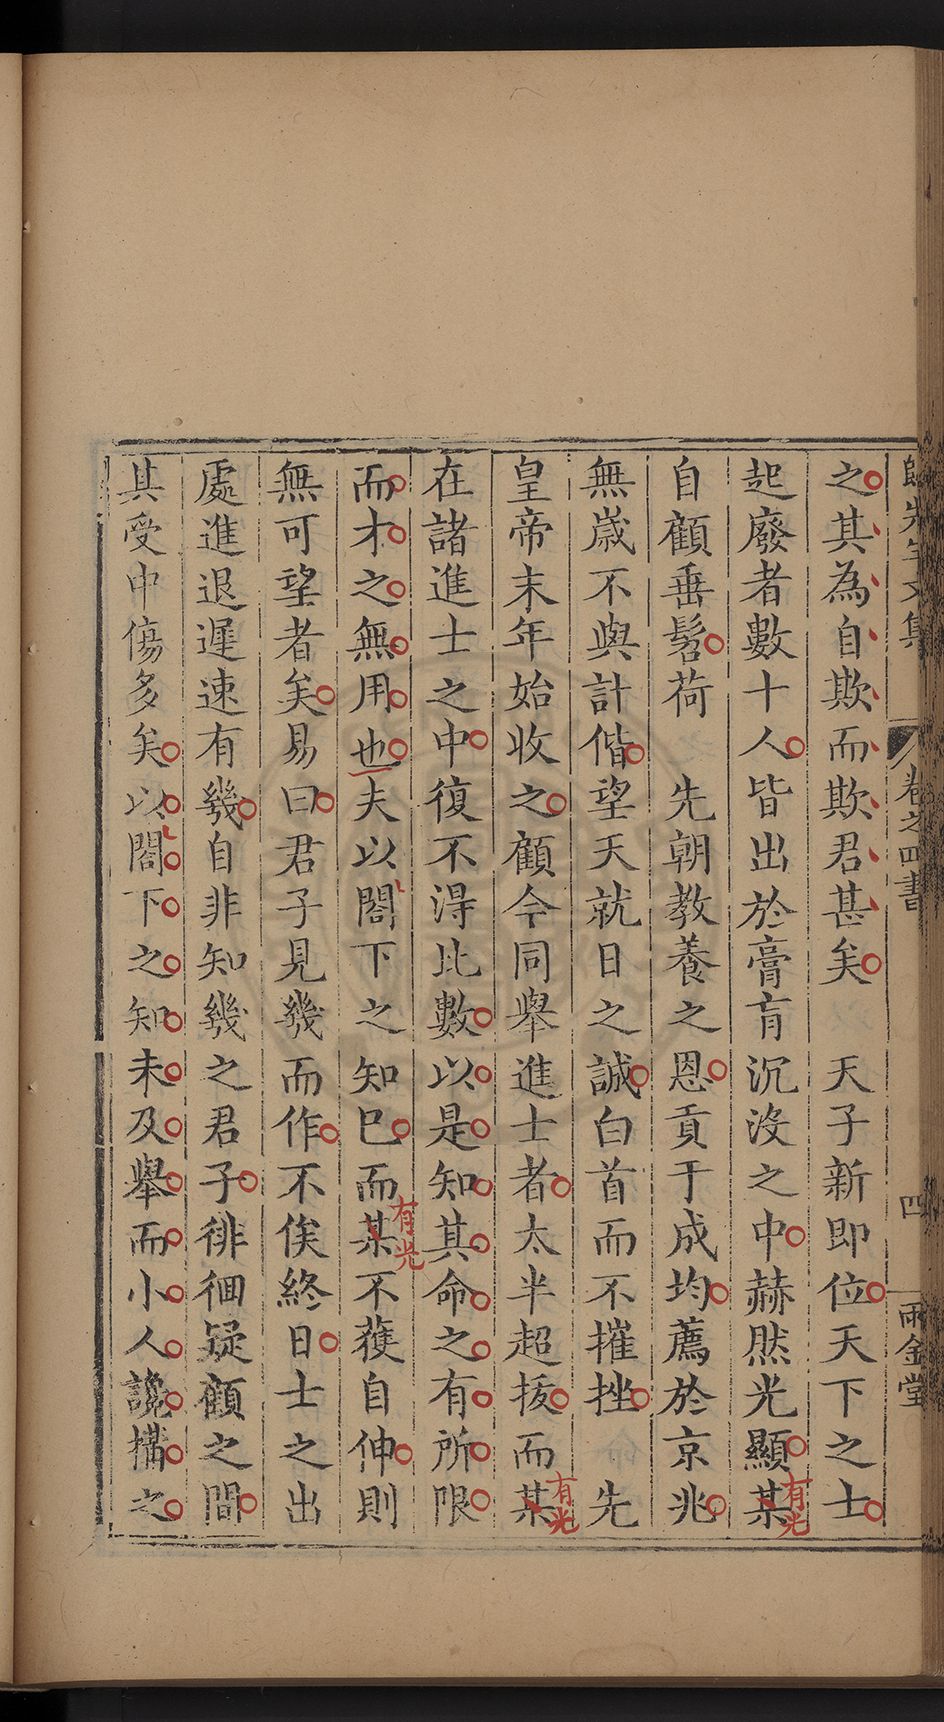 歸先生文集 卷之四書 四 雨金堂
之其為自欺而欺君甚矣 天子新即位天下之士
起廢者數十人皆出於膏肓沉沒之中赫然光顯某
有光
自顧垂髫荷 先朝教養之恩貢于成均薦於京兆
無歲不與計偕望天就日之誠白首而不摧挫 先
皇帝末年始收之顧今同舉進士者太半超拔而某
有光
在諸進士之中復不得比數以是知其命之有所限
而才之無用也夫以閣下之知已而某不獲自伸則
有光
無可望者矣易曰君子見幾而作不俟終日士之出
處進退遲速有幾自非知幾之君子徘徊疑顧之間
其受中傷多矣以閣下之知未及舉而小人讒搆之